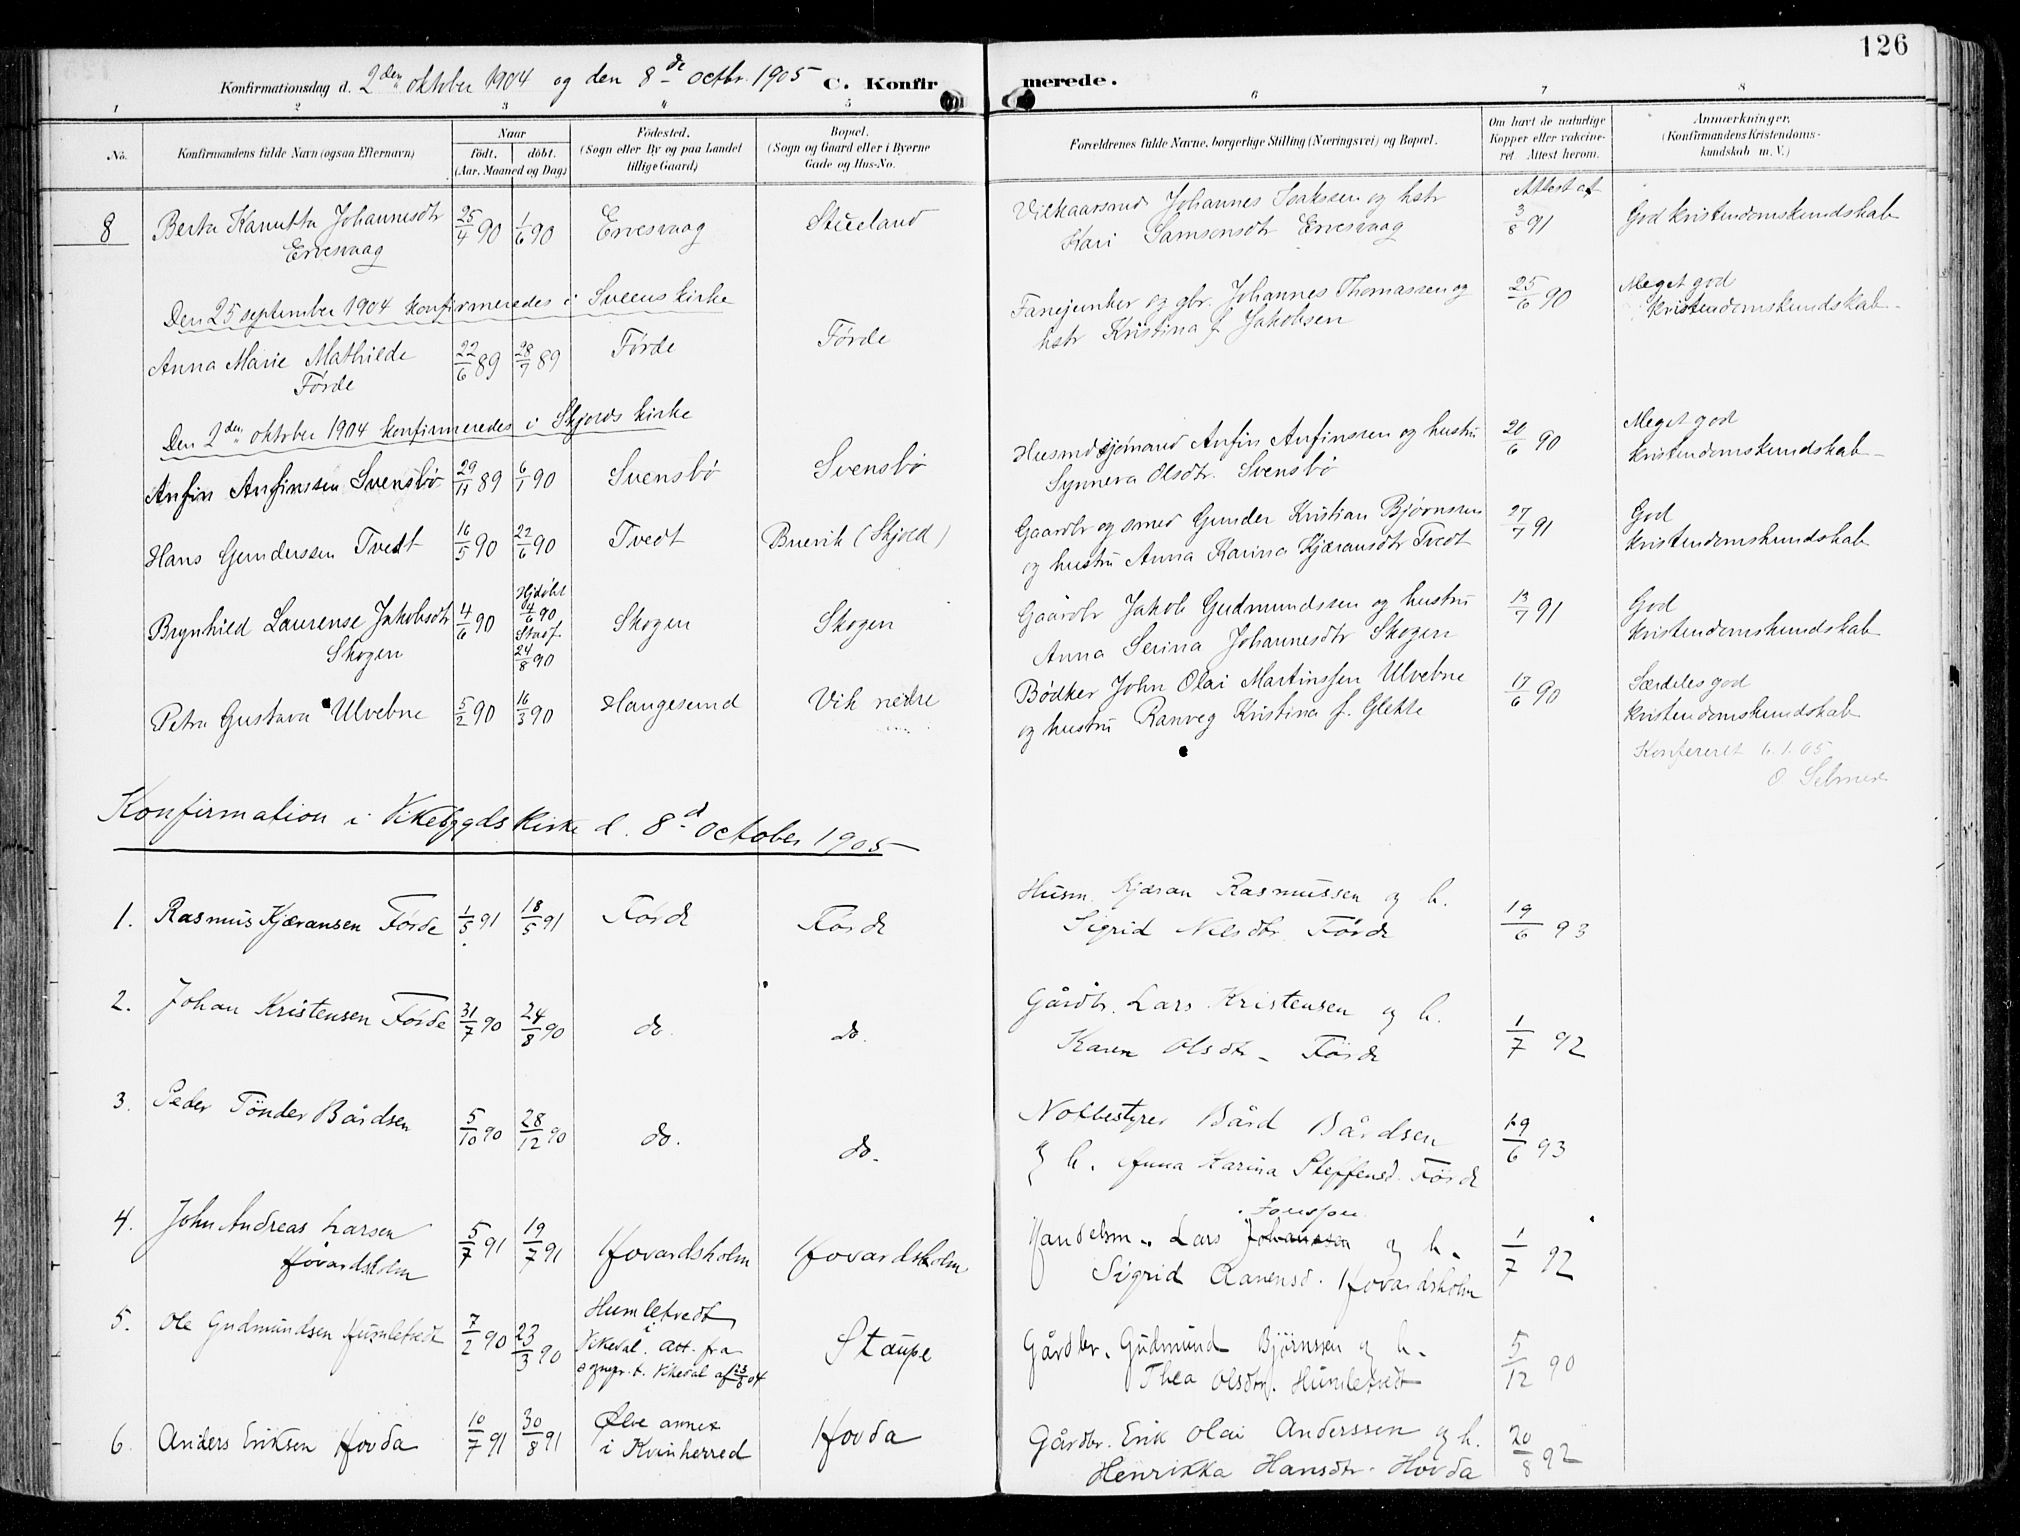 126
Konfirmationsdag d. 2den oktober 1904 og den 8de octbr. 1905 C. Konfirmerede.
1 2 3 4 5 6 7 8
No.
Konfirmandens fulde Navn (ogsaa Efternavn)
Naar
født. døbt.
(Aar, Maaned og Dag)
Fødested.
(Sogn eller By og paa Landet
tillige Gaard)
Bopæl.
(Sogn og Gaard eller i Byerne
Gade og Hus-No.
Forældrenes fulde Navne, borgerlige Stilling (Næringsvei) og Bopæl.
Om havt de naturlige
Kopper eller vakcine-
ret Attest herom.
Anmærkninger.
(Konfirmandens Kristendoms-
kundskab m. V.)
8 Berta Kanutta Johannesdtr 25/4 90 1/6 90 Ervesvaag Stueland Vilkaarsmd Johannes Isaksen og hstr Attest af 3/8 91 God kristendomskundskab
Ervesvaag Kari Samsonsdtr Ervesvaag
Den 25 september 1904 konfirmeredes i Sveens kirke
Anna Marie Mathilde 22/6 89 28/7 89 Førde Førde Fanejunker og gbr. Johannes Thomassen og 25/6 90 Meget god
Førde hstr Kristina f. Jakobsen kristendomskundskab
Den 2den oktober 1904 konfirmeredes i Skjolds kirke
Anfin Anfinssen Svensbø 29/11 89 6/1 90 Svensbø Svensbø Husmd sjømand Anfin Anfinssen og hustru 20/6 90 Meget god
Synneva Olsdtr. Svensbø kristendomskundskab
Hans Gunderssen Tvedt 16/5 90 22/6 90 Tvedt Bruvik (Skjold) Gaardbr og smed Gunder Kristian Bjørnssen 27/7 91 God
og hustru Anna Karina Kjæransdtr Tvedt kristendomskundskab
Brynhild Laurense Jakobsdtr 4/6 90 Hjdøbt 4/6 90 Skogen Skogen Gaardbr Jakob Gudmundssen og hustru 13/7 91 God
Skogen Stadf. 24/8 90 Anna Serina Johannesdtr Skogen kristendomskundskab
Petra Gustava Ulvebne 5/2 90 16/3 90 Haugesund Vik nedre Bødker John Olai Martinssen Ulvebne 17/6 90 Særdeles god
og hustru Ranveg Kristina f. Glette kristendomskundskab
Konfereret 6.1.05
O Selmer
Konfirmation i Vikebygds kirke d. 8d October 1905
1. Rasmus Kjæransen Førde 1/5 91 18/5 91 Førde Førde Husm. Kjæran Rasmussen og h. 19/6 93
Sigrid Nilsdtr. Førde
2. Johan Kristensen Førde 31/7 90 24/8 90 do. do. Gårdbr. Lars Kristensen og h. 1/7 92
Karen Olsdtr. Førde
3. Peder Tønder Bårdsen 5/10 90 28/12 90 do. do. Notbestyrer Bård Bårdsen 19/6 93
og h. Anna Karina Steffensd. Førde
4. John Andreas Larsen 5/7 91 19/7 91 Hovardsholm Hovardsholm Handelsm. Lars Johansen og h. 1/7 92
Hovardsholm Sigrid Aanensd. Hovardsholm
5. Ole Gudmundsen Humletvedt 7/2 90 23/3 90 Humletvedt Staupe Gårdbr. Gudmund Bjørnsen og h. 5/12 90
i Vikedal. Att. fra Thea Olsdtr. Humletvedt
sognpr. t. Vikedal af 23/8 04
6. Anders Eriksen Hovda 10/7 91 30/8 91 Ølve annex Hovda Gårdbr. Erik Olai Anderssen og h. 20/8 92
i Kvinherred Henrikka Hansdtr. Hovda